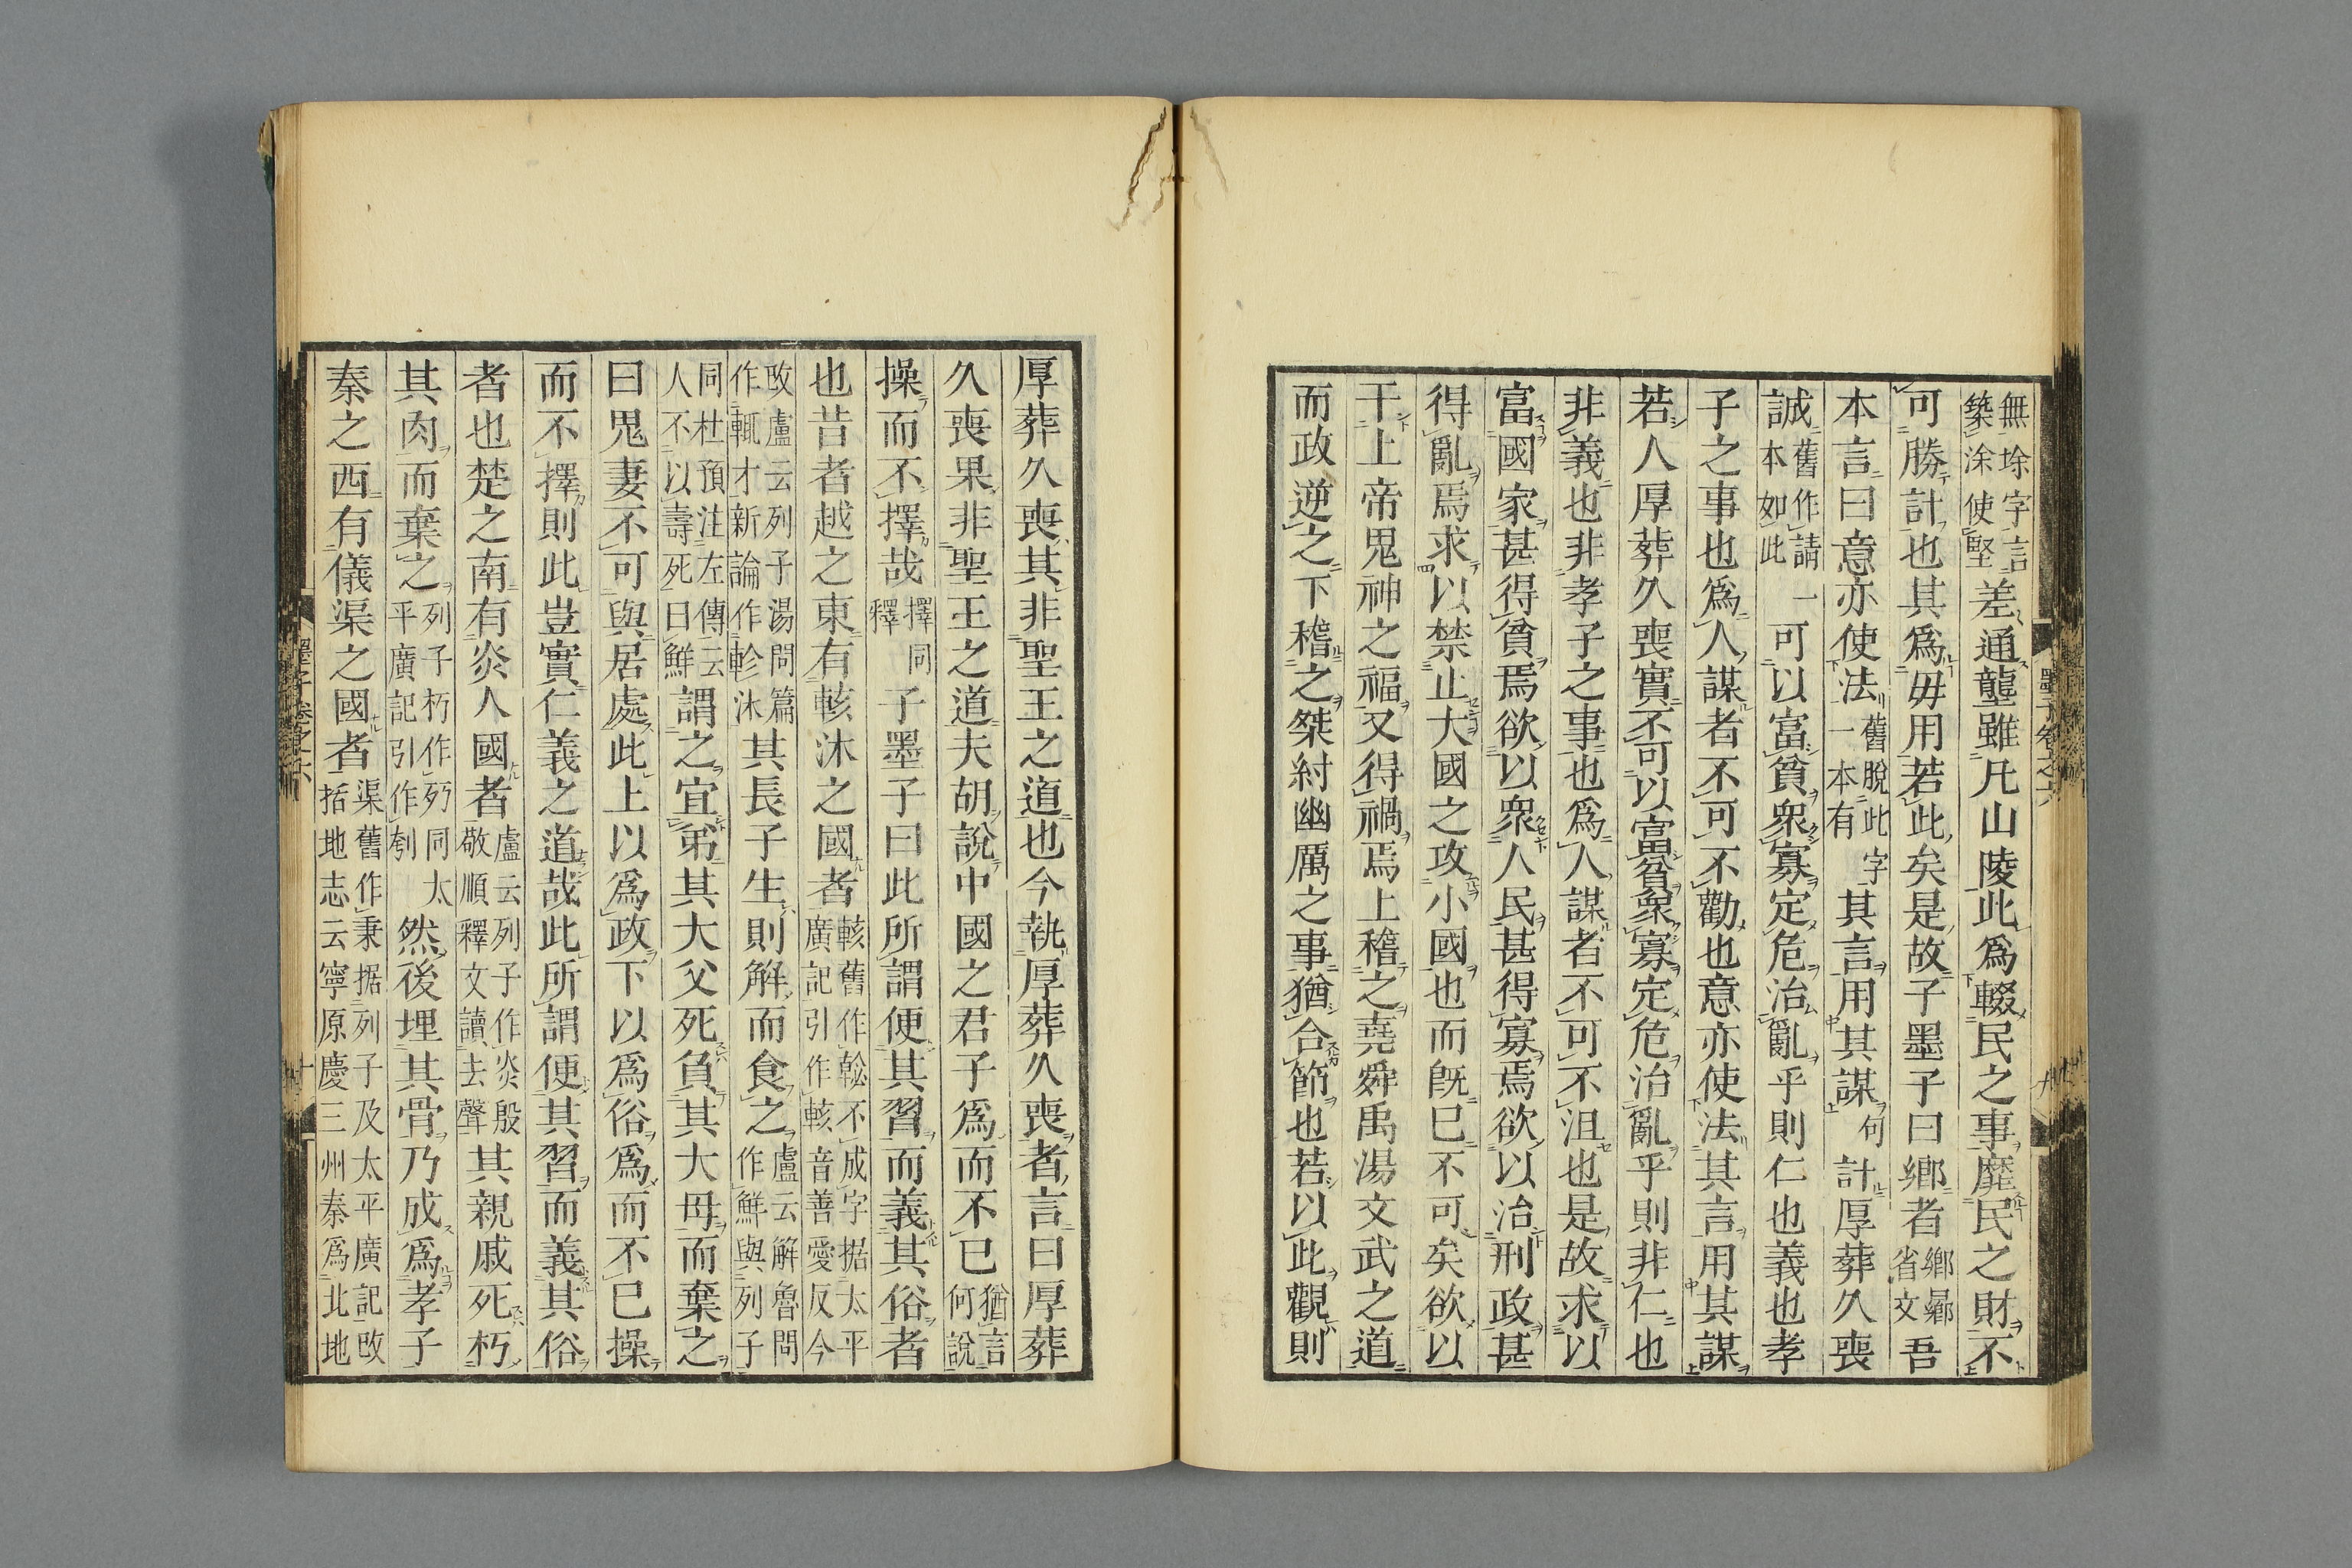 無㙇字言築涂使堅差通壟雖凡山陵此爲輟民之事靡民之財不
可勝計也其爲毋用若此矣是故子墨子曰鄉者鄉曏省文吾
本言曰意亦使法舊脫此字一本有其言用其謀句計厚葬久喪
誠舊作請一本如此可以富貧衆寡定危治亂乎則仁也義也孝
子之事也爲人謀者不可不勸也意亦使法其言用其謀
若人厚葬久喪實不可以富貧衆寡定危治亂乎則非仁也
非義也非孝子之事也爲人謀者不可不沮也是故求以
富國家甚得貧焉欲以衆人民甚得寡焉欲以治刑政甚
得亂焉求以禁止大國之攻小國也而既已不可矣欲以
干上帝鬼神之福又得禍焉上稽之堯舜禹湯文武之道
而政逆之下稽之桀紂幽厲之事猶合節也若以此觀則
墨子卷之六
九
厚葬久喪其非聖王之道也今執厚葬久喪者言曰厚葬
久喪果非聖王之道夫胡說中國之君子爲而不已猶言何說
操而不擇哉擇同釋子墨子曰此所謂便其習而義其俗者
也昔者越之東有輆沐之國者輆舊作𨋎不成字据太平廣記引作輆音善愛反今
改盧云列子湯問篇作輒才新論作軫沐其長子生則解而食之盧云解魯問作鮮與列子
同杜預注左傳云人不以壽死曰鮮謂之宜弟其大父死負其大母而棄之
曰鬼妻不可與居處此上以爲政下以爲俗爲而不已操
而不擇則此豈實仁義之道哉此所謂便其習而義其俗
者也楚之南有炎人國者盧云列子作炎殷敬順釋文讀去聲其親戚死朽
其肉而棄之列子朽作㱙同太平廣記引作刳然後埋其骨乃成爲孝子
秦之西有儀渠之國者渠舊作秉据列子及太平廣記改括地志云寧原慶三州秦爲北地
墨子卷之六
十